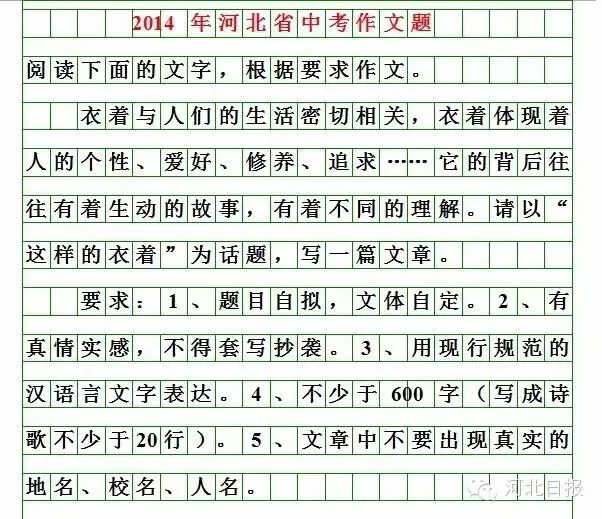 2014 年河北省中考作文题
阅读下面的文字，根据要求作文。
衣着与人们的生活密切相关，衣着体现着
人的个性、爱好、修养、追求……它的背后往
往有着生动的故事，有着不同的理解。请以“
这样的衣着”为话题，写一篇文章。
要求：1、题目自拟，文体自定。2、有
真情实感，不得套写抄袭。3、用现行规范的
汉语言文字表达。4、不少于 600 字（写成诗
歌不少于20行）。5、文章中不要出现真实的
地名、校名、人名。
河北日报